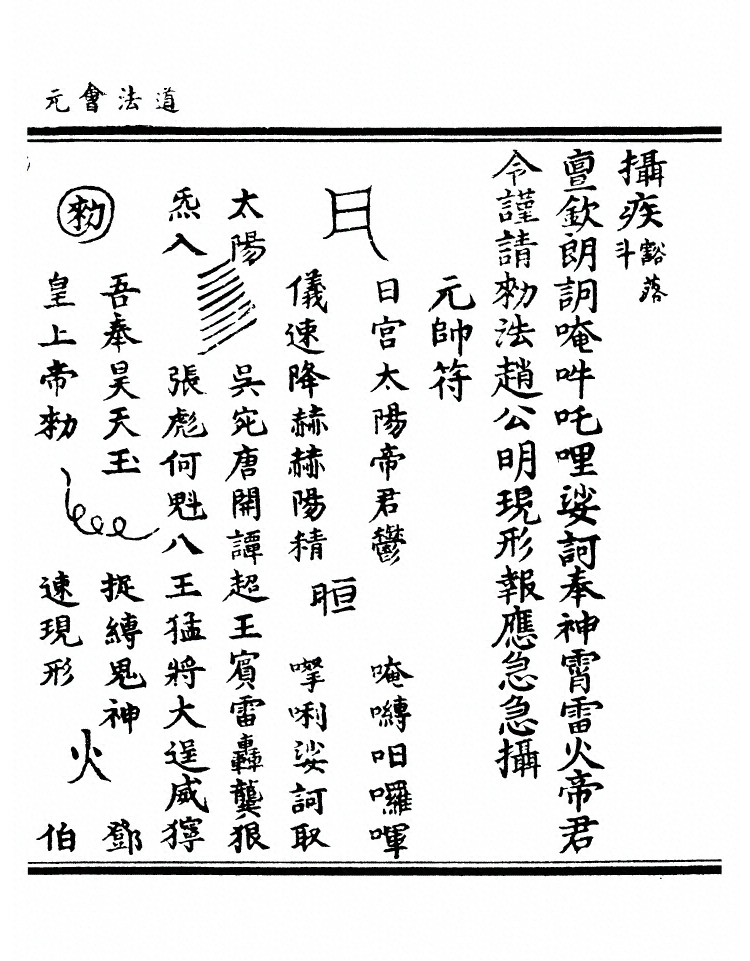 道法會元
攝疾豁落斗
亶欽朗詗唵吽吒哩娑訶奉神霄雷火帝君
令謹請勑法趙公明現形報應急急攝
元帥符
日
日宮太陽帝君鬱
儀速降赫赫陽精
唵嚩呬囉喗
㘄唎娑訶取
太陽
炁入
吳宛唐開譚超王賓雷轟龔狠
張彪何魁八王猛將大逞威獰
勑
吾奉昊天玉
皇上帝勑
捉縛鬼神
速現形
火
鄧
伯